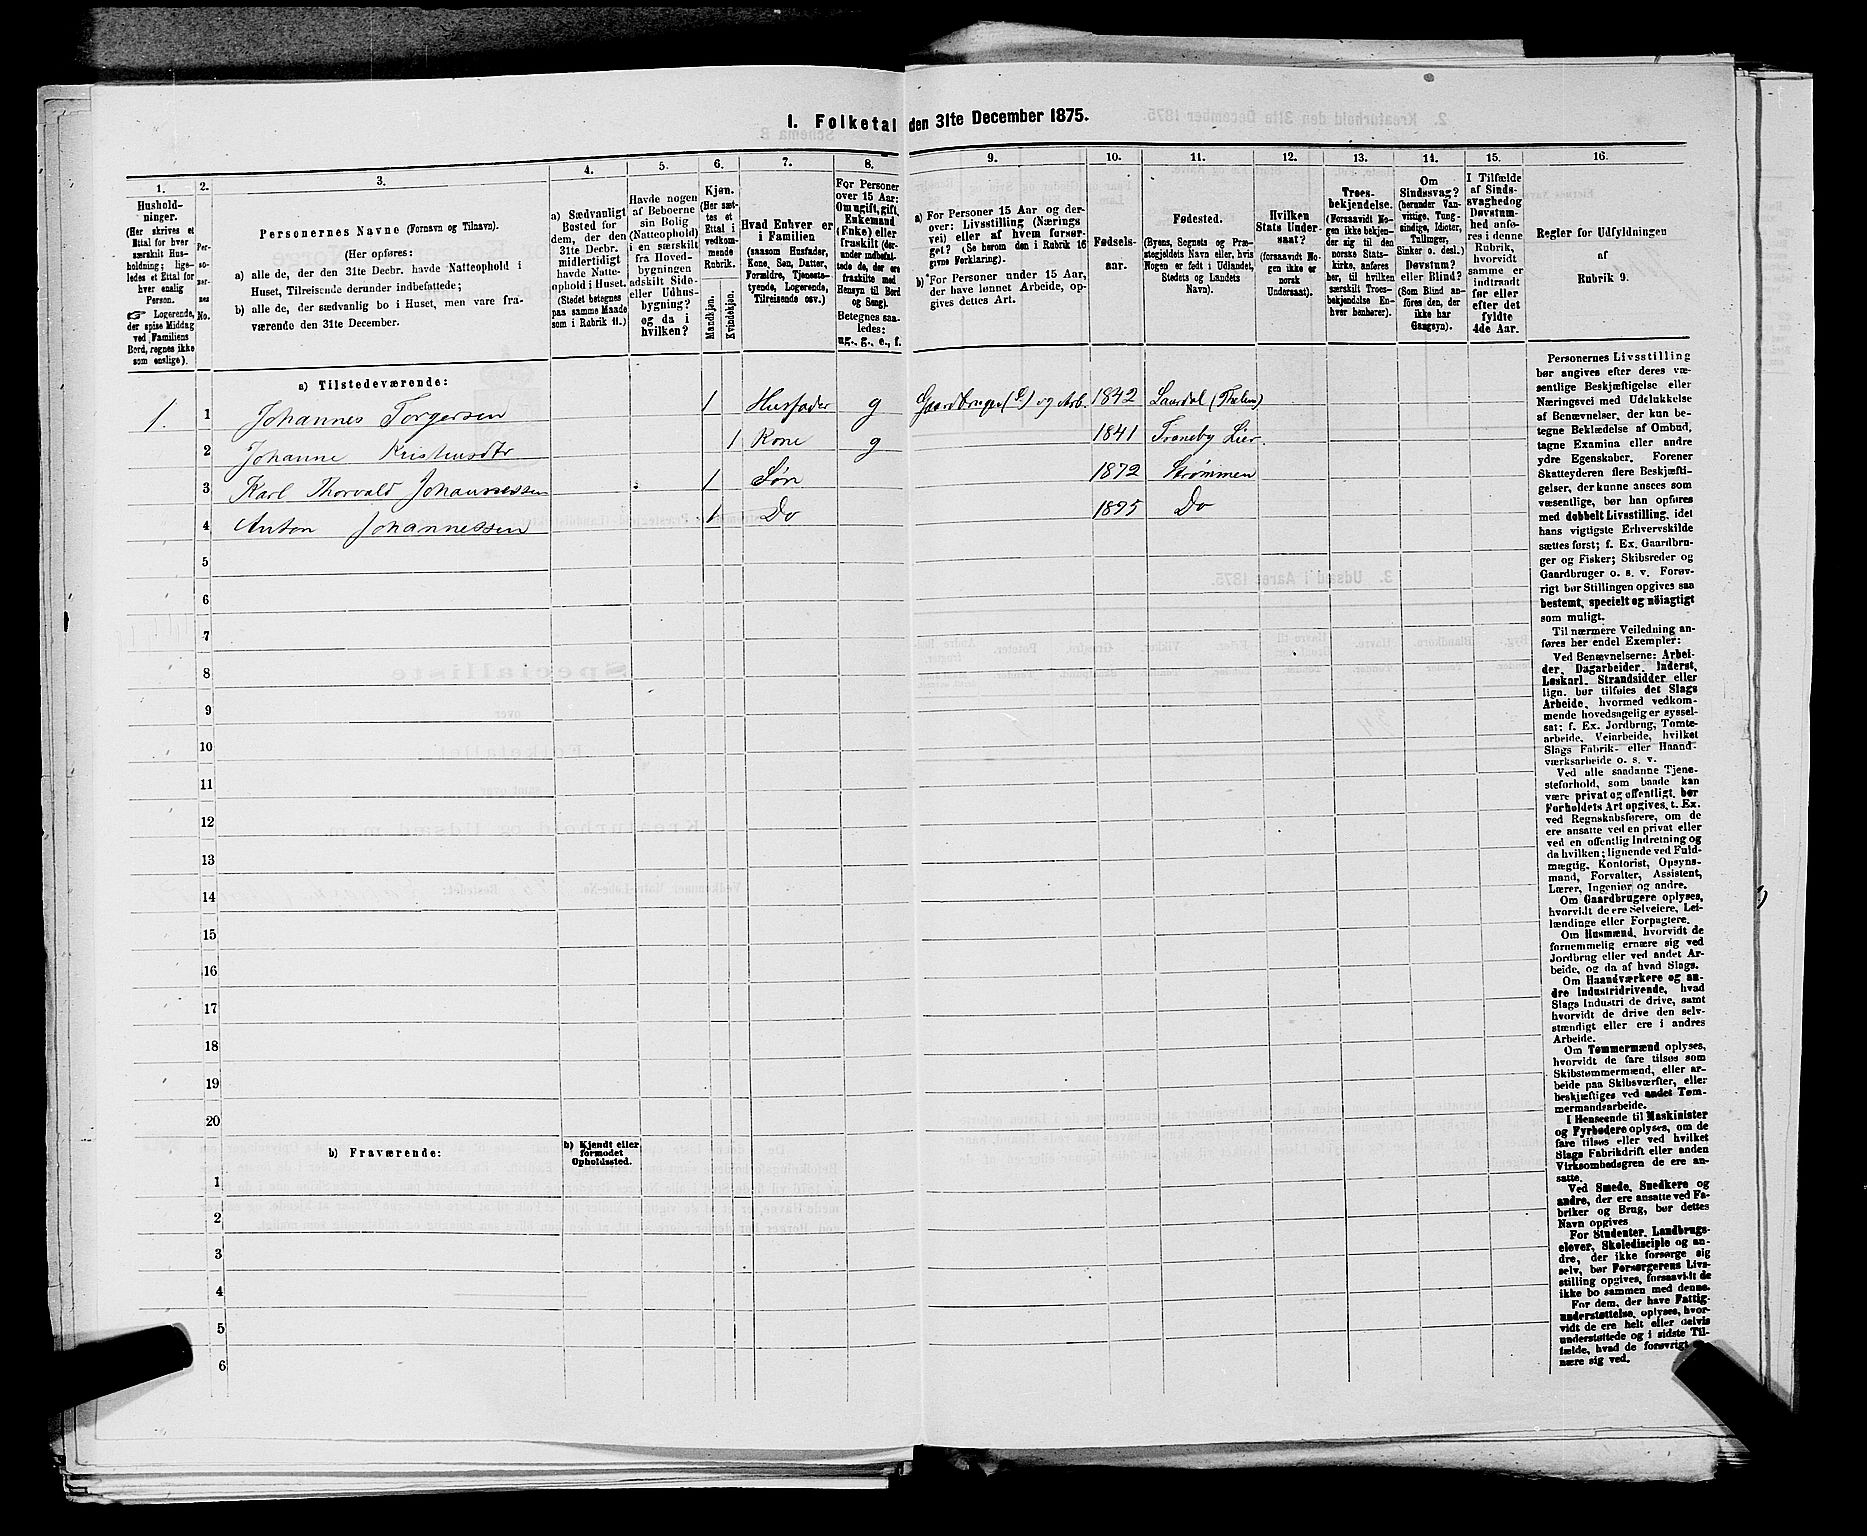 I. Folketal den 31te December 1875.
1.
Husholdninger.
(Her skrives et Ettal for hver særskilt Husholdning; ligeledes et Ettal for hver enslig Person.
☞ Logerende, der spise Middag ved Familiens Bord, regnes ikke som enslige).
2.
Personernes No.
3.
Personernes Navne (Fornavn og Tilnavn).
(Her opføres:
a) alle de, der den 31te Decbr. havde Natteophold i
Huset, Tilreisende derunder indbefattede;
b) alle de, der sædvanlig bo i Huset, men vare fra-
værende den 31te December.
4.
a) Sædvanligt
Bosted for
dem, der den
31te Decbr.
midlertidigt
havde Natte-
ophold i Huset.
(Stedet betegnes
paa samme Maade
som i Rubrik 11.)
5.
Havde nogen
af Beboerne
sin Bolig
(Natteophold)
i en særskilt
fra Hoved-
bygningen
adskilt Side-
eller Udhus-
bygning?
og da i
hvilken?
6.
Kjøn.
(Her sæt-
tes et
Ettal i
vedkom-
mende
Rubrik.
Mandkjøn.
Kvindekjøn.
7.
Hvad Enhver er
i Familien
(saasom Husfader,
Kone, Søn, Datter,
Forældre, Tjeneste-
tyende, Logerende,
Tilreisende osv.)
8.
For Personer
over 15 Aar:
Om ugift, gift,
Enkemand
(Enke) eller
fraskilt (der-
under indbefat-
tede de, der ere
fraskilte med
Hensyn til Bord
og Seng).
Betegnes saa-
ledes:
ug., g., e., f.
9.
a) For Personer 15 Aar og der-
over: Livsstilling (Nærings-
vei) eller af hvem forsør-
get? (Se herom den i Rubrik 16
givne Forklaring).
b) For Personer under 15 Aar,
der have lønnet Arbeide, op-
gives dettes Art.
10.
Fødsels-
aar.
11.
Fødested.
(Byens, Sognets og Præ-
stegjeldets Navn eller, hvis
Nogen er født i Udlandet,
Stedets og Landets
Navn).
12.
Hvilken
Stats Under-
saat?
(forsaavidt No-
gen ikke er
norsk
Undersaat).
13.
Troes-
bekjendelse.
(Forsaavidt No-
gen ikke bekjen-
der sig til den
norske Stats-
kirke, anføres
her, til hvilken
særskilt Troes-
bekjendelse En-
hver henhører).
14.
Om
Sindssvag?
(herunder Van-
vittige, Tung-
sindige, Idioter,
Tullinger,
Sinker o. desl.)
Døvstum?
eller Blind?
(Som Blind an-
føres den, der
ikke har
Gangsyn).
15.
I Tilfælde
af Sinds-
svaghed og
Døvstum-
hed anfø-
res i denne
Rubrik,
hvorvidt
samme er
indtraadt
før eller
efter det
fyldte
4de Aar.
16.
Regler for Udfyldningen
af
Rubrik 9.
a) Tilstedeværende:
1. 1 Johannes Torgersen 1 Husfader g Gaardbruger og Arb. 1842 Laurdal (Thelem)
2 Johanne 1 Kone g 1841 Lier.
3 Karl Thorvald Johannessen 1 Søn 1872 Strømmen
4 Anton Johannessen 1 Do 1875 Do
5
6
7
8
9
10
11
12
13
14
15
16
17
18
19
20
b) Fraværende:
b) Kjendt eller
formodet
Opholdssted.
1
2
3
4
5
6
Personernes Livsstilling
bør angives efter deres væ-
sentlige Beskjæftigelse eller
Næringsvei med Udelukkelse
af Benævnelser, der kun be-
tegne Beklædelse af Ombud,
tagne Examina eller andre
ydre Egenskaber. Forener
Skatteyderen flere Beskjæfti-
gelser, der kunne ansees som
væsentlige, bør han opføres
med dobbelt Livsstilling, idet
hans vigtigste Erhvervskilde
sættes først; f. Ex. Gaardbru-
ger og Fisker; Skibsreder og
Gaardbruger o. s. v. Forøv-
rigt bør Stillingen opgives saa
bestemt, specielt og nöiagtigt
som muligt.
Til nærmere Veiledning an-
føres her endel Exempler:
Ved Benævnelserne: Arbei-
der, Dagarbeider, Inderst,
Løskarl, Strandsidder eller
lign. bør tilføies det Slags
Arbeide, hvormed vedkom-
mende hovedsagelig er syssel-
sat; f. Ex. Jordbrug, Tomte-
arbeide, Veiarbeide, hvilket
Slags Fabrik- eller Haand-
værksarbeide o. s. v.
Ved alle saadanne Tjene-
steforhold, som baade kan
være privat og offentligt, bør
Forholdets Art opgives, t. Ex.
ved Regnskabsførere, om de
ere ansatte ved en privat eller
ved en offentlig Indretning og
da hvilken; lignende ved Fuld-
mægtig, Kontorist, Opsyns-
mand, Forvalter, Assistent,
Lærer, Ingeniør og andre.
Om Gaardbrugere oplyses,
hvorvidt de ere Selveiere, Lei-
lændinge eller Forpagtere.
Om Husmænd, hvorvidt de
fornemmelig ernære sig ved
Jordbrug eller ved andet Ar-
beide, og da af hvad Slags.
Om Haandværkere og an-
dre Industridrivende, hvad
Slags Industri de drive, samt
hvorvidt de drive den selv-
stændigt eller ere i andres
Arbeide.
Om Tømmermænd oplyses,
hvorvidt de fare tilsøs som
Skibstømmermænd, eller ar-
beide paa Skibsværfter, eller
beskjæftiges ved andet Tøm-
mermandsarbeide.
I Henseende til Maskinister
og Fyrbødere oplyses, om de
fare tilsøs eller ved hvilket
Slags Fabrikdrift eller anden
Virksomhedsgren de ere an-
satte.
Ved Smede, Snedkere og
andre, der ere ansatte ved Fa-
briker og Brug, bør dettes
Navn opgives
For Studenter, Landbrugs-
elever, Skoledisciple og an-
dre, der ikke forsørge sig
selv, bør Forsørgerens Livs-
stilling opgives, forsaavidt de
ikke bo sammen med denne.
For dem, der have Fattig-
understøttelse, oplyses, hvor-
vidt de ere helt eller delvis
understøttede og i sidste Til-
fælde, hvad de forøvrigt
nære sig ved.